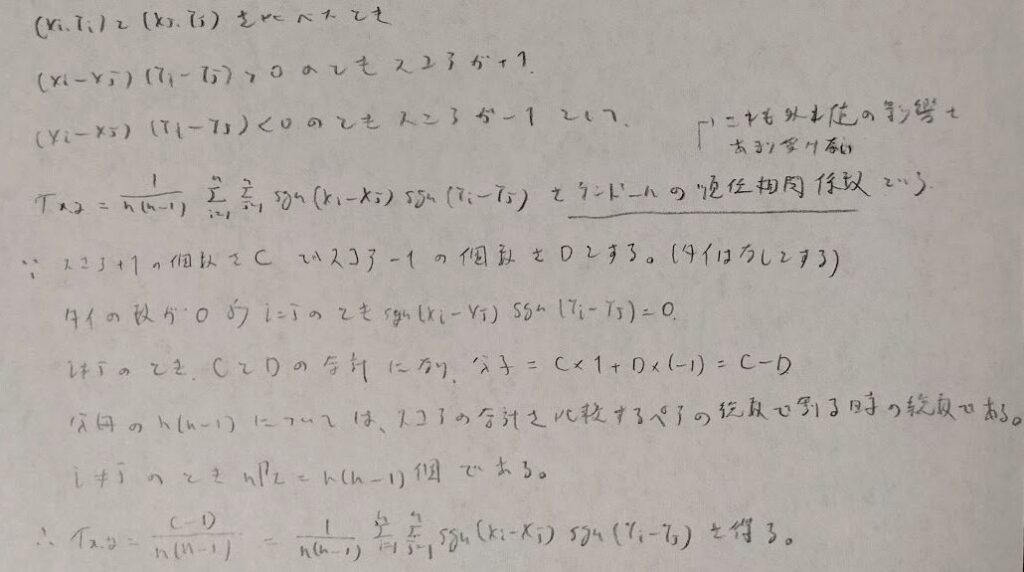 (xi, yi)と(xj, yj)を比べたとき
(xi-xj)(yi-yj)>0のときスコアが+1.
(xi-xj)(yi-yj)<0のときスコアが-1として.
これも外れ値の影響を
あまり受けない
τx,y = 1/n(n-1) Σ[i=1→n] Σ[j=1→n] sgn(xi-xj) sgn(yi-yj) をケンドールの順位相関係数という.
∵ スコア+1の個数をC でスコア-1の個数をDとする。(タイはなしとする)
タイの数が0 的 i=jのときsgn(xi-xj) sgn(yi-yj)=0.
i≠jのとき. CとDの合計になり, 分子 = C×1+D×(-1) = C-D
分母のn(n-1)については、スコアの合計を比較するペアの総数で割る時の総数である。
i≠jのときnP2=n(n-1)個である。
∴ τx,y = C-D/n(n-1) = 1/n(n-1) Σ[i=1→n] Σ[j=1→n] sgn(xi-xj) sgn(yi-yj) を得る。